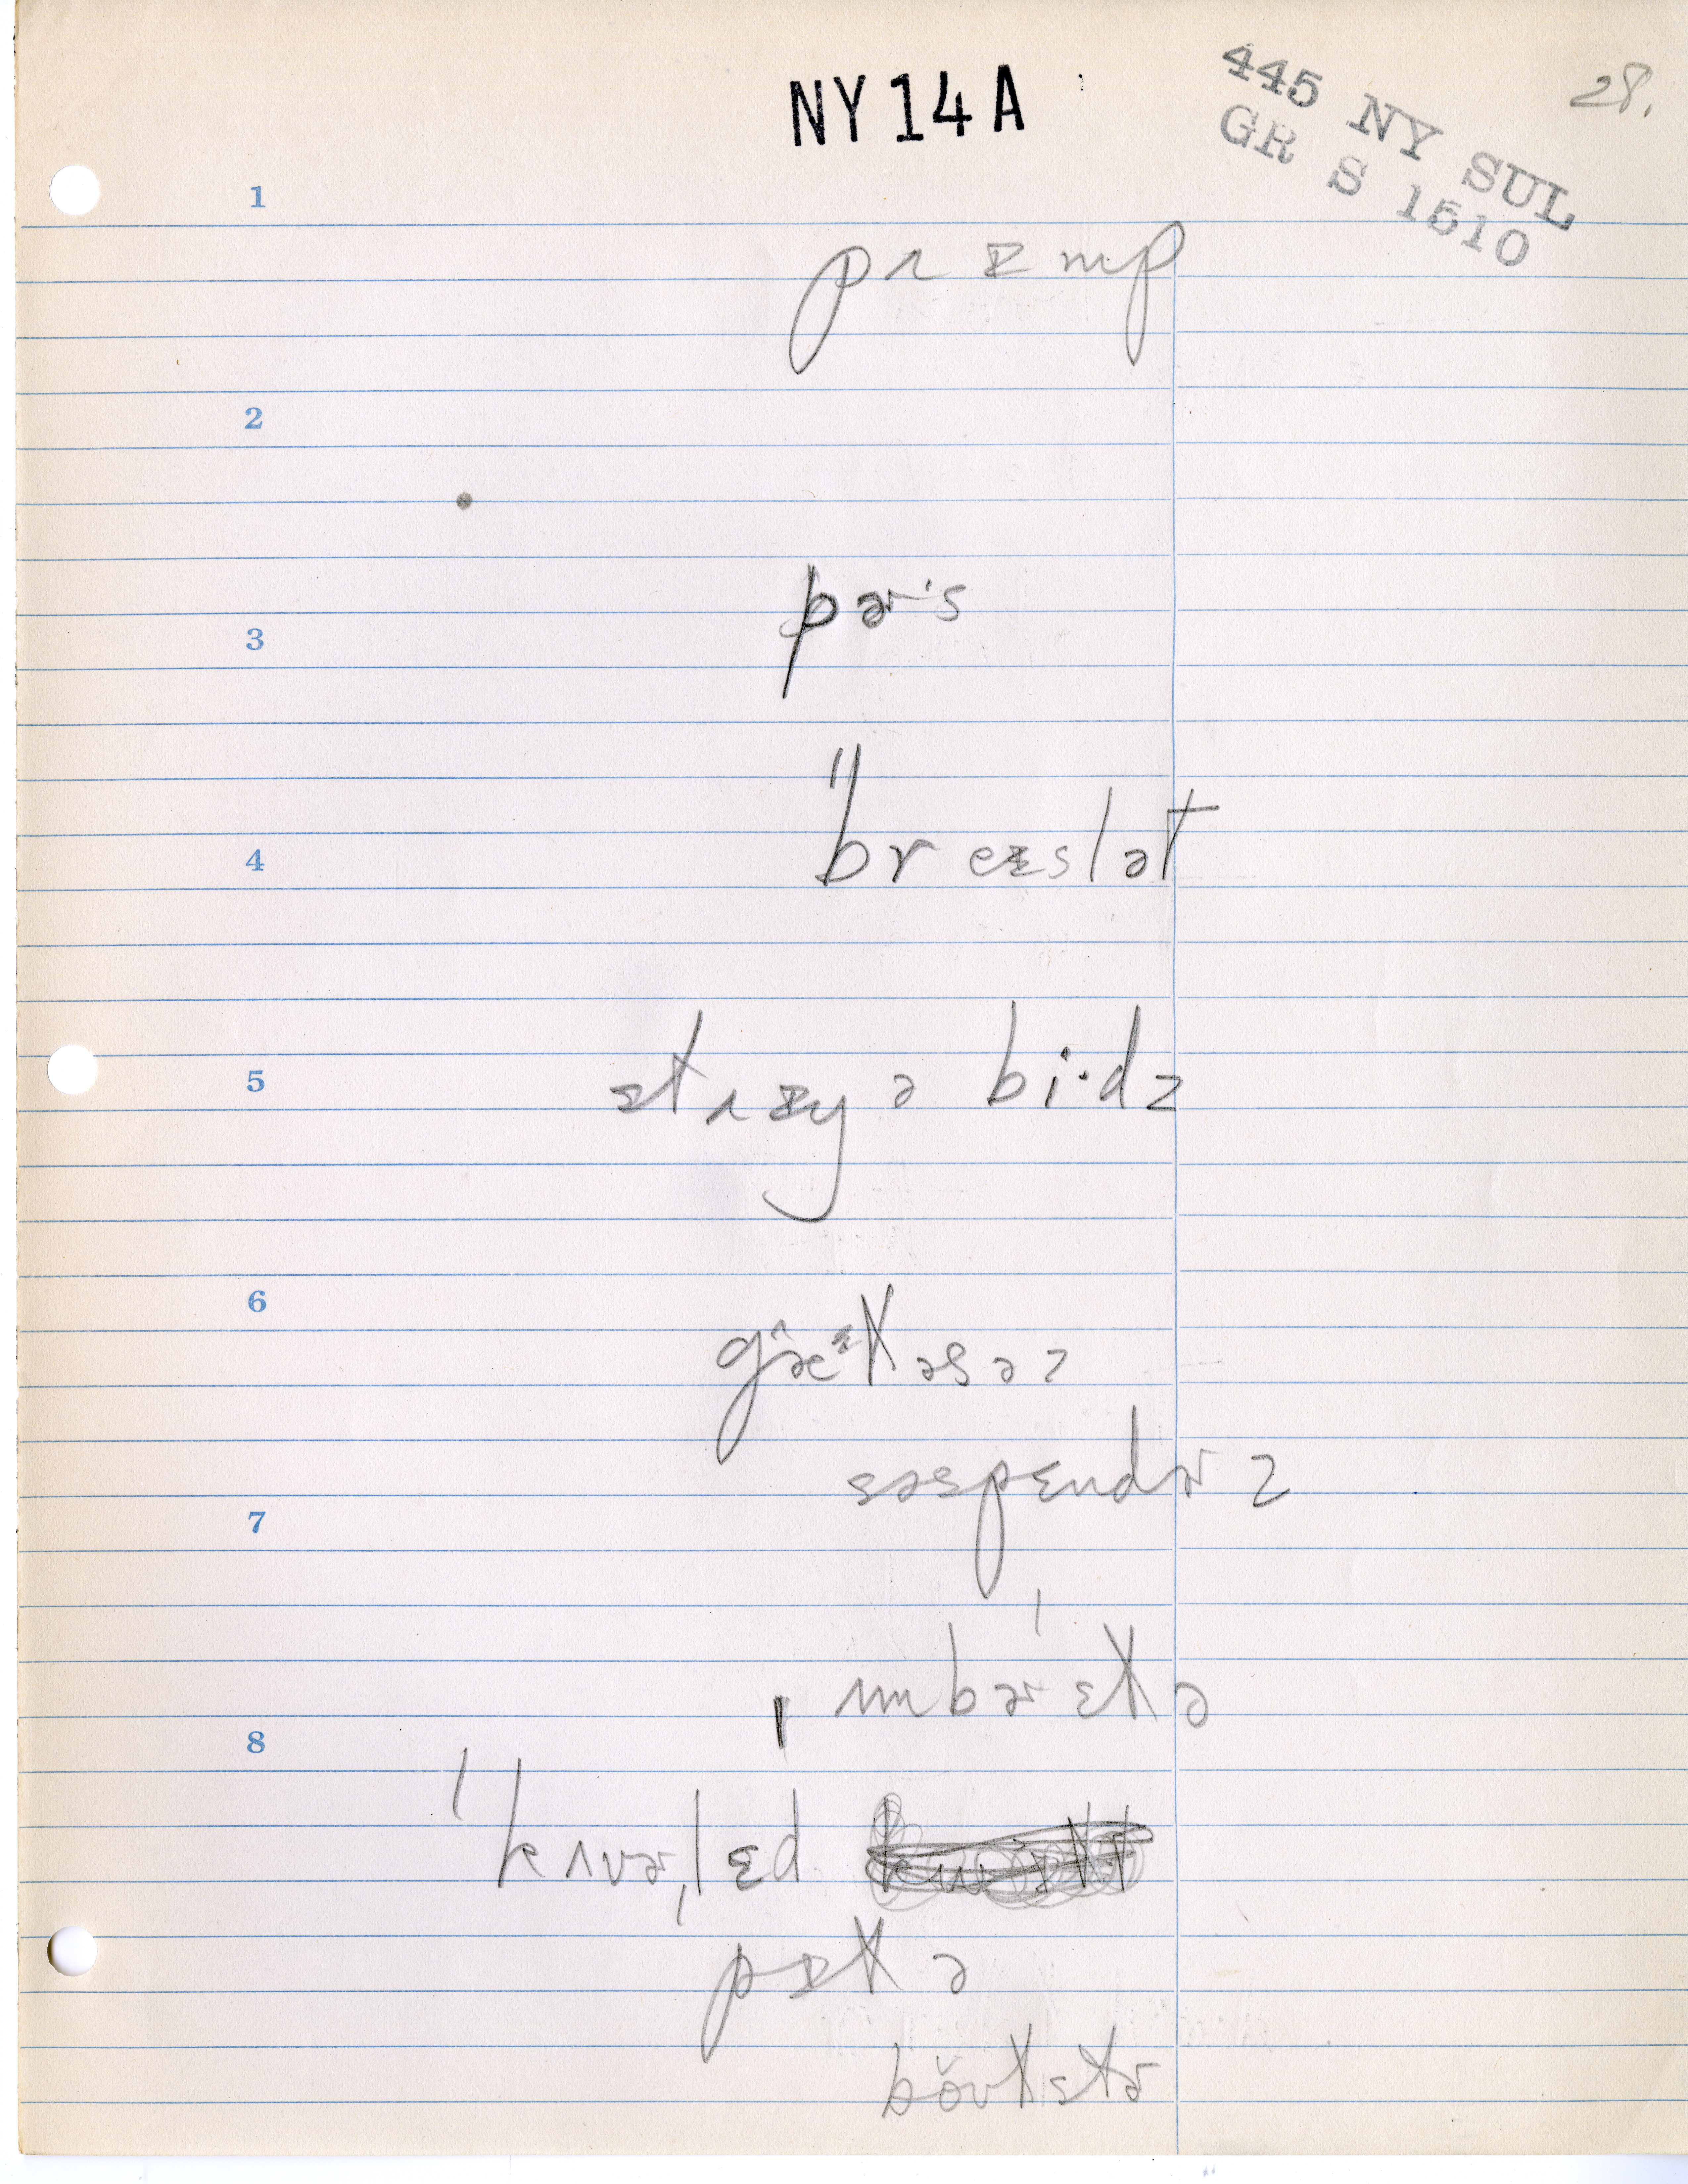 NY 14 A
445 NY SUL
GR S 1510
28.
1
prɪmp
2
pɚˑs
3
"breɪslət
4
strɪŋ ə biˑdz
5
gæ̂ᵊləsəz
6
səspendɚz
7
ˌʌmbɚˈɛlə
8
ˈkʌvɚˌlɛd
pɪlə
bŏʊlstɚ